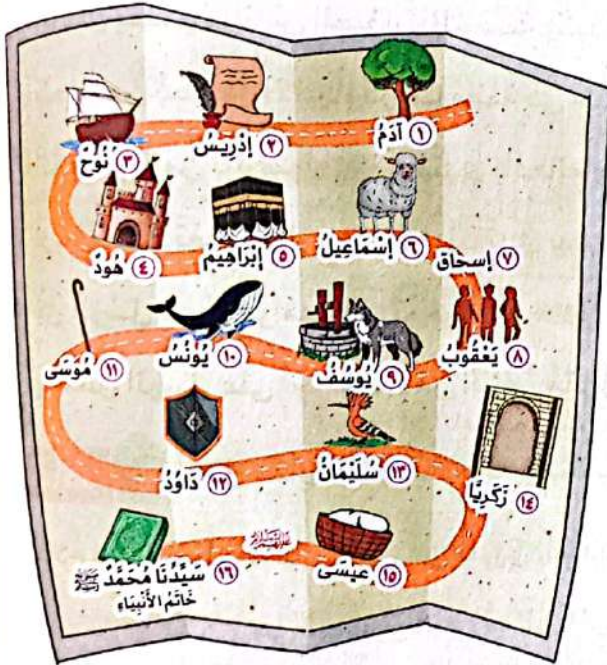 ١ آدَمُ
٢ إِدْرِيسُ
٣ نُوحٌ
٤ هُودٌ
٥ إِبْرَاهِيمُ
٦ إِسْمَاعِيلُ
٧ إسحاق
٨ يَعْقُوبُ
٩ يُوسُفُ
١٠ يُونُسُ
١١ مُوسَى
١٢ دَاوُدُ
١٣ سُلَيْمَانُ
١٤ زَكَرِيَّا
١٥ عِيسَى
عليهم السلام
١٦ سَيِّدُنَا مُحَمَّدٌ ﷺ
خَاتَمُ الأَنْبِيَاءِ